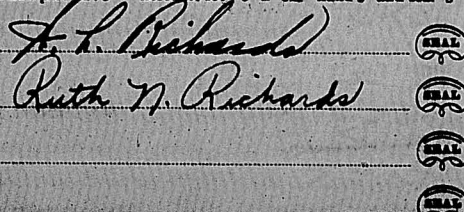 A. L. Richards SEAL
Ruth N. Richards SEAL
SEAL
SEAL